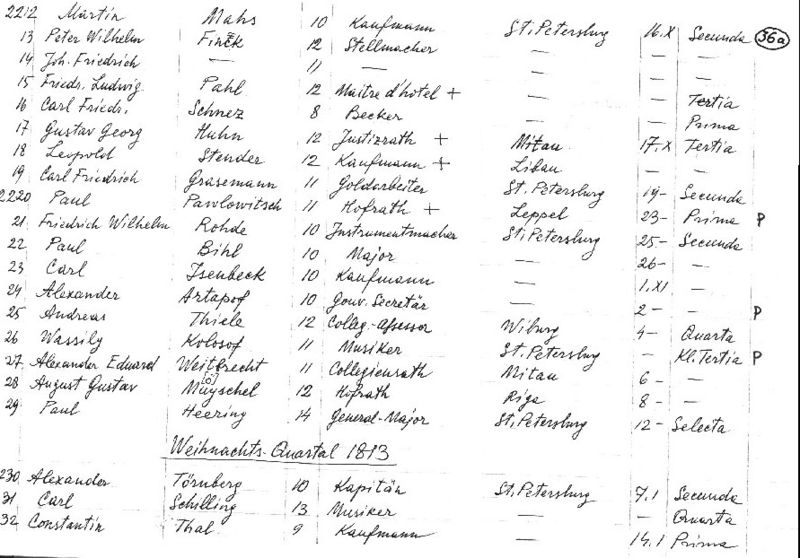 2212 Martin Mahs 10 Kaufmann St. Petersburg 16.X Secunda 36a
13 Peter Wilhelm Finck 12 Stellmacher — — —
14 Joh. Friedrich — 11 — — — —
15 Friedr. Ludwig Pahl 12 Maitre d'hotel + — — Tertia
16 Carl Friedr. Schnez 8 Becker — — Prima
17 Gustav Georg Huhn 12 Justizrath + Mitau 17.X Tertia
18 Leopold Stender 12 Kaufmann + Libau — —
19 Carl Friedrich Grasemann 11 Goldarbeiter St. Petersburg 19- Secunda
2220 Paul Pawlowitsch 11 Hofrath + Leppel 23- Prima P
21 Friedrich Wilhelm Rohde 10 Instrumentmacher St. Petersburg 25- Secunda
22 Paul Bihl 10 Major — 26- —
23 Carl Isenbeck 10 Kaufmann — 1.XI —
24 Alexander Artapof 10 Gouv. Secretär — 2- — P
25 Andreas Thiele 12 Colleg.-Assessor Wiburg 4- Quarta
26 Wassily Kolosof 11 Musiker St. Petersburg — Kl. Tertia P
27. Alexander Eduard Weitbrecht 11 Collegienrath Mitau 6- —
28 August Gustav Muyschel 12 Hofrath Riga 8- —
29 Paul Heering 14 General-Major St. Petersburg 12- Selecta
Weihnachts-Quartal 1813
230 Alexander Törnberg 10 Kapitän St. Petersburg 7.1 Secunda
31 Carl Schilling 13 Musiker — — Quarta
32 Constantin Thal 9 Kaufmann — 14.1 Prima